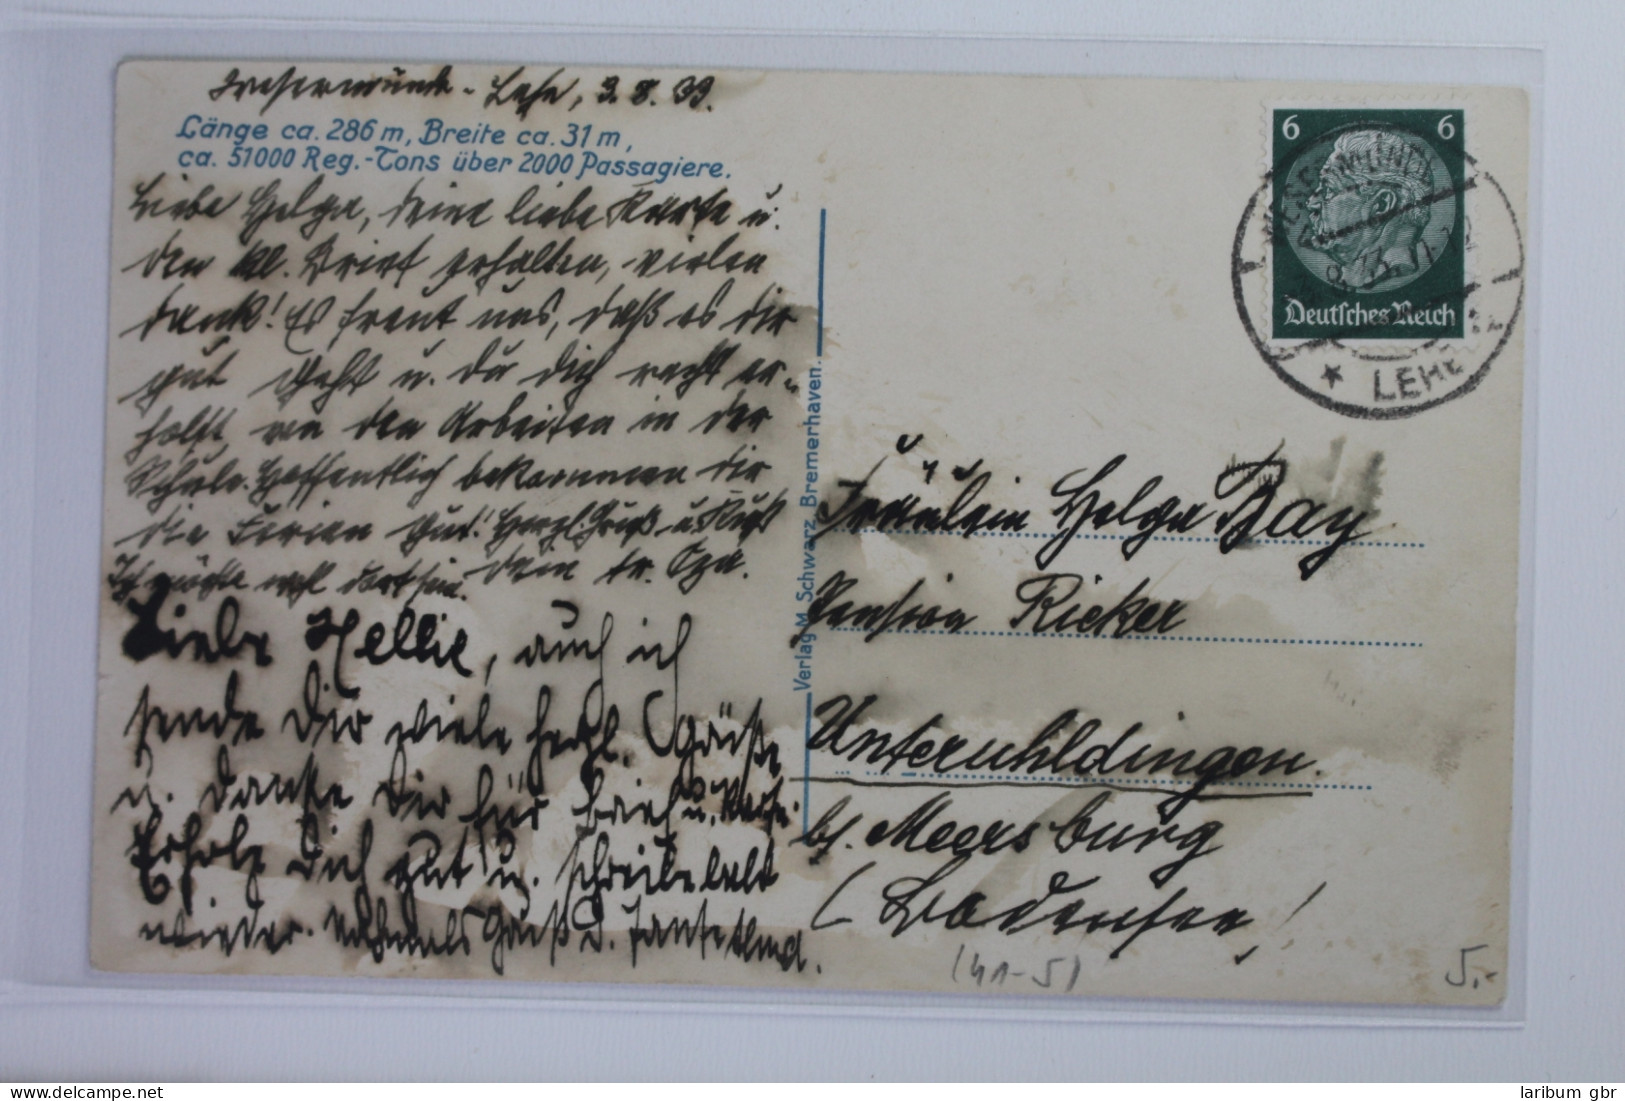 Wesermünde - Lehe, 3.8.33.
Länge ca. 286 m, Breite ca. 31 m,
ca. 51000 Reg.-Tons über 2000 Passagiere.
Liebe Helga, deine liebe Karte u.
den kl. Brief erhalten, vielen
Dank! Es freut uns, daß es dir
gut geht u. du dich recht er-
holst, von den Arbeiten in der
Schule. Hoffentlich bekommen dir
die Ferien gut! Herzl. Gruß u. Kuß
Ich möchte wohl dort sein. Dein tr. Opa.
Liebe Hellie, auch ich
sende Dir viele herzl. Grüße
u. danke Dir für Brief u. Karte.
Erhole Dich gut u. schreibe bald
wieder. Nochmals Gruß d. Tante Alma.
Verlag M. Schwarz, Bremerhaven.
6 6
Deutsches Reich
WESERMÜNDE
8.33.11-12
* LEHE
Fräulein Helga Bay
Pension Ricker
Unteruhldingen.
bs. Meersburg
(Bodensee!
(41-5)
5,-
laribum gbr